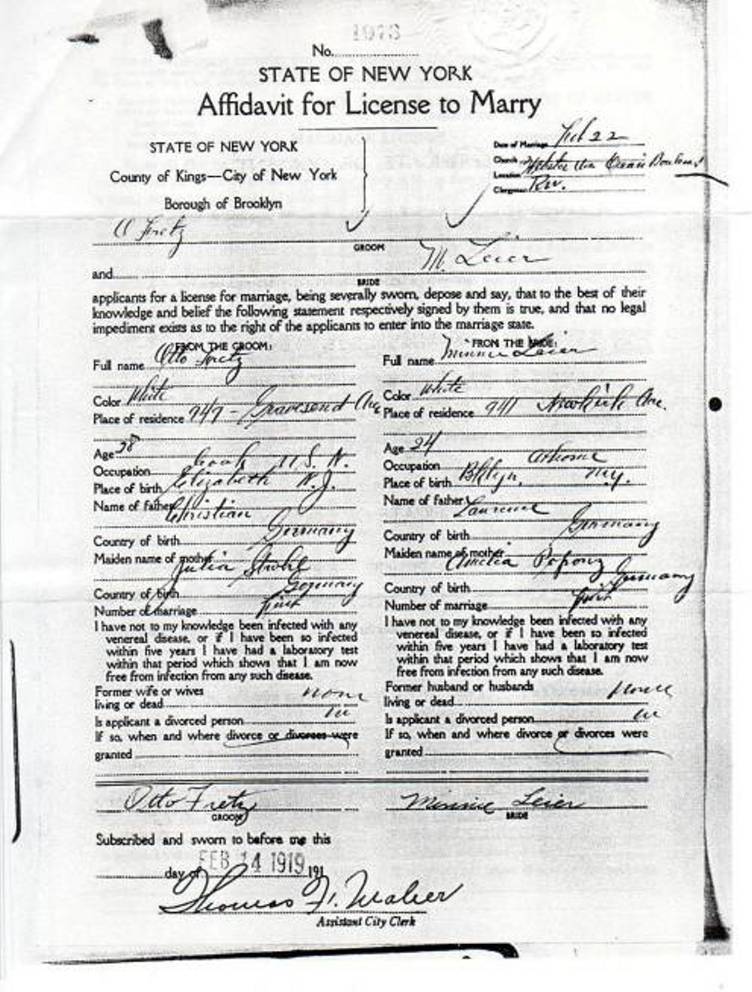 1973
No.
STATE OF NEW YORK
Affidavit for License to Marry
STATE OF NEW YORK
County of Kings—City of New York
Borough of Brooklyn
Date of Marriage Feb 22
Church or
Location
Clergyman Rev.
O Fretz
GROOM
and M. Leier
BRIDE
applicants for a license for marriage, being severally sworn, depose and say, that to the best of their
knowledge and belief the following statement respectively signed by them is true, and that no legal
impediment exists as to the right of the applicants to enter into the marriage state.
FROM THE GROOM:
Full name Otto Fretz
Color White
Place of residence 947 - Gravesend Ave
Age 28
Occupation Cook U.S.N.
Place of birth Elizabeth N.J.
Name of father Christian
Country of birth Germany
Maiden name of mother Julia Strohl
Country of birth Germany
Number of marriage first
I have not to my knowledge been infected with any
venereal disease, or if I have been so infected
within five years I have had a laboratory test
within that period which shows that I am now
free from infection from any such disease.
Former wife or wives
living or dead none
Is applicant a divorced person no
If so, when and where divorce or divorces were
granted
FROM THE BRIDE:
Full name Minnie Leier
Color White
Place of residence 941 Ave.
Age 24
Occupation at home
Place of birth Bklyn. N.Y.
Name of father Laurence
Country of birth Germany
Maiden name of mother Amelia
Country of birth Germany
Number of marriage first
I have not to my knowledge been infected with any
venereal disease, or if I have been so infected
within five years I have had a laboratory test
within that period which shows that I am now
free from infection from any such disease.
Former husband or husbands
living or dead none
Is applicant a divorced person no
If so, when and where divorce or divorces were
granted
Otto Fretz
GROOM
Minnie Leier
BRIDE
Subscribed and sworn to before me this
day of FEB 14 1919 191
Thomas F. Maher
Assistant City Clerk